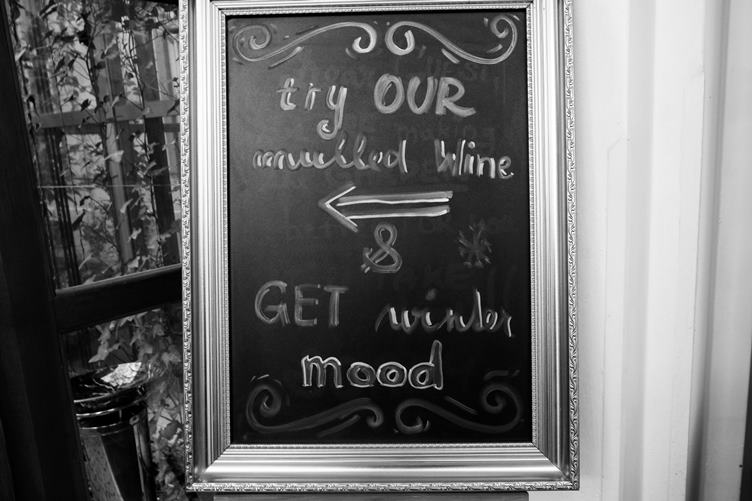 try OUR
mulled Wine
&
GET winter
mood